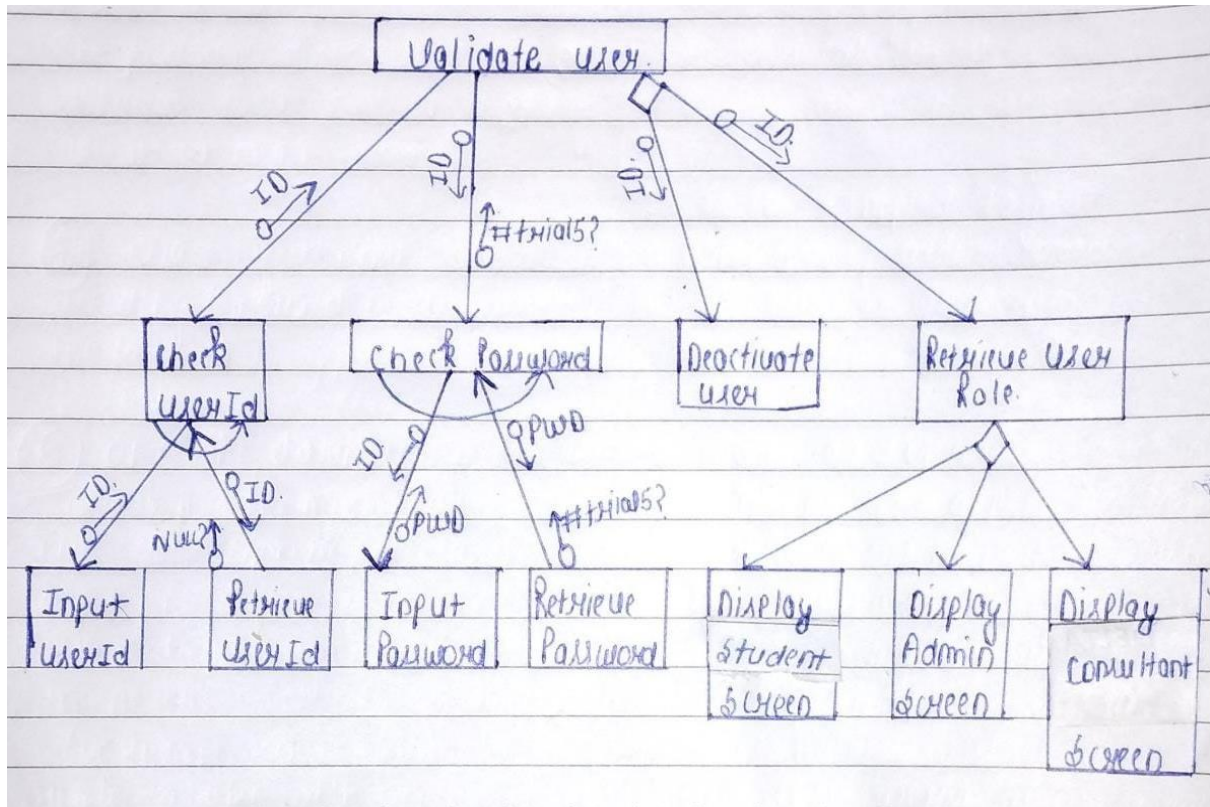 Validate user.
ID
ID
#trials?
ID
ID.
Check
userId
Check Password
Deactivate
user
Retrieve user
Role.
ID.
ID.
Null?
ID
PWD
PWD
#trials?
Input
userId
Retrieve
userId
Input
Password
Retrieve
Password
Display
Student
Screen
Display
Admin
Screen
Display
Consultant
Screen